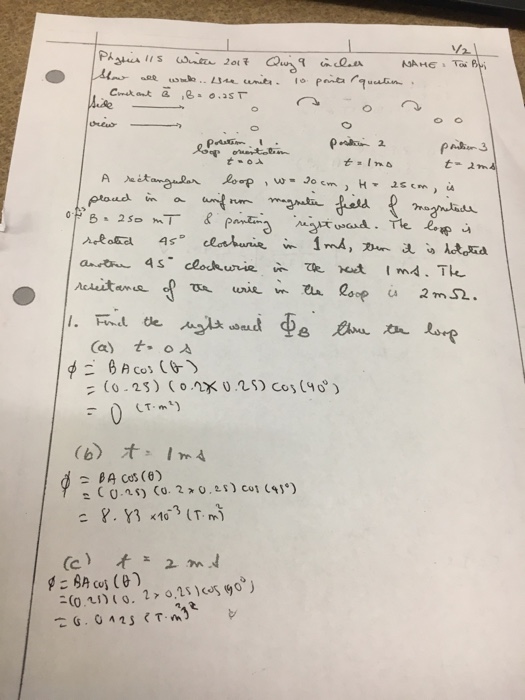 1/2
Physics 115 Winter 2017 Quiz 9 in class NAME: Tai Bui
Show all work.. Use units. 10 points/question.
Constant B⃗, B = 0.25T
Side
view
position 1 position 2 position 3
loop orientation
t = 0 s t = 1 ms t = 2 ms
A rectangular loop, w = 20 cm, H = 25 cm, is
placed in a uniform magnetic field of magnitude
B = 250 mT & pointing rightward. The loop is
rotated 45° clockwise in 1ms, then it is rotated
another 45° clockwise in the next 1 ms. The
resistance of the wire in the loop is 2mΩ.
1. Find the rightward Φ_B thru the loop
(a) t = 0 s
ϕ = BA cos(θ)
= (0.25) (0.2 × 0.25) cos(90°)
= 0 (T·m²)
(b) t = 1 ms
ϕ = BA cos(θ)
= (0.25) (0.2 × 0.25) cos(45°)
= 8.83 × 10⁻³ (T·m²)
(c) t = 2 ms
ϕ = BA cos(θ)
= (0.25) (0.2 × 0.25) cos
= 0.0125 (T·m²)